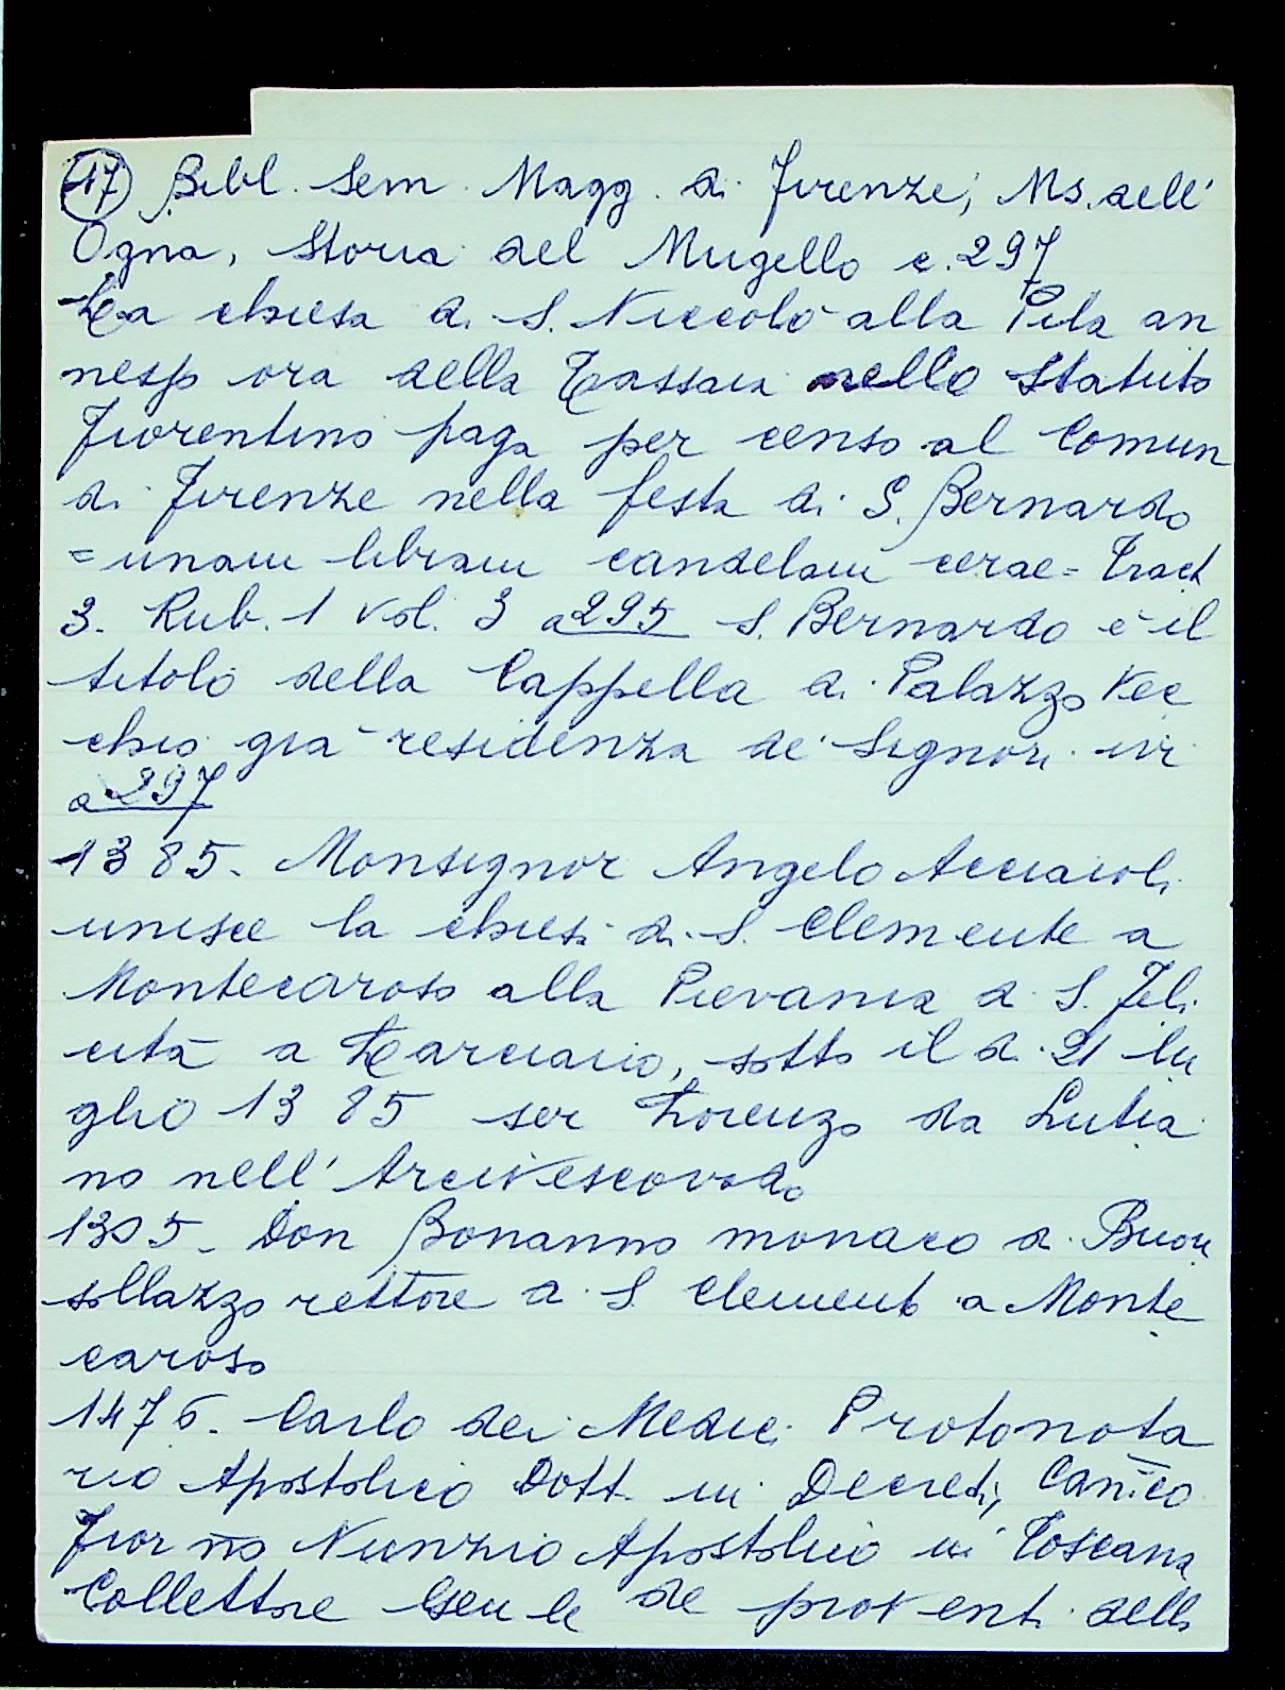 (17) Bibl. Sem. Magg. di Firenze, Ms. dell'
Ogna, Storia del Mugello c. 297
La chiesa di S. Niccolò alla Pila an
nessa ora della Tassaia nello Statuto
Fiorentino paga per censo al Comun
di Firenze nella festa di S. Bernardo
= unam libram candelam cerae = Tract
3. Rub. 1 vol. 3 a 295 S. Bernardo è il
titolo della Cappella di Palazzo Vec
chio già residenza de' Signori ivi
a 297
1385. Monsignor Angelo Acciaioli
unisce la chiesa di S. Clemente a
Montecaroso alla Pievania di S. Feli
cita a Larciano, sotto il dì 21 lu
glio 1385 ser Lorenzo da Lutia
no nell' Arcivescovado
1305. Don Bonanno monaco di Buon
sollazzo rettore di S. Clemente a Monte
caroso
1476. Carlo dei Medici Protonota
rio Apostolico Dott. in Decreti, Can̄ico
Fior n̄o Nunzio Apostolico in Toscana
Collettore Gen le de proventi delli